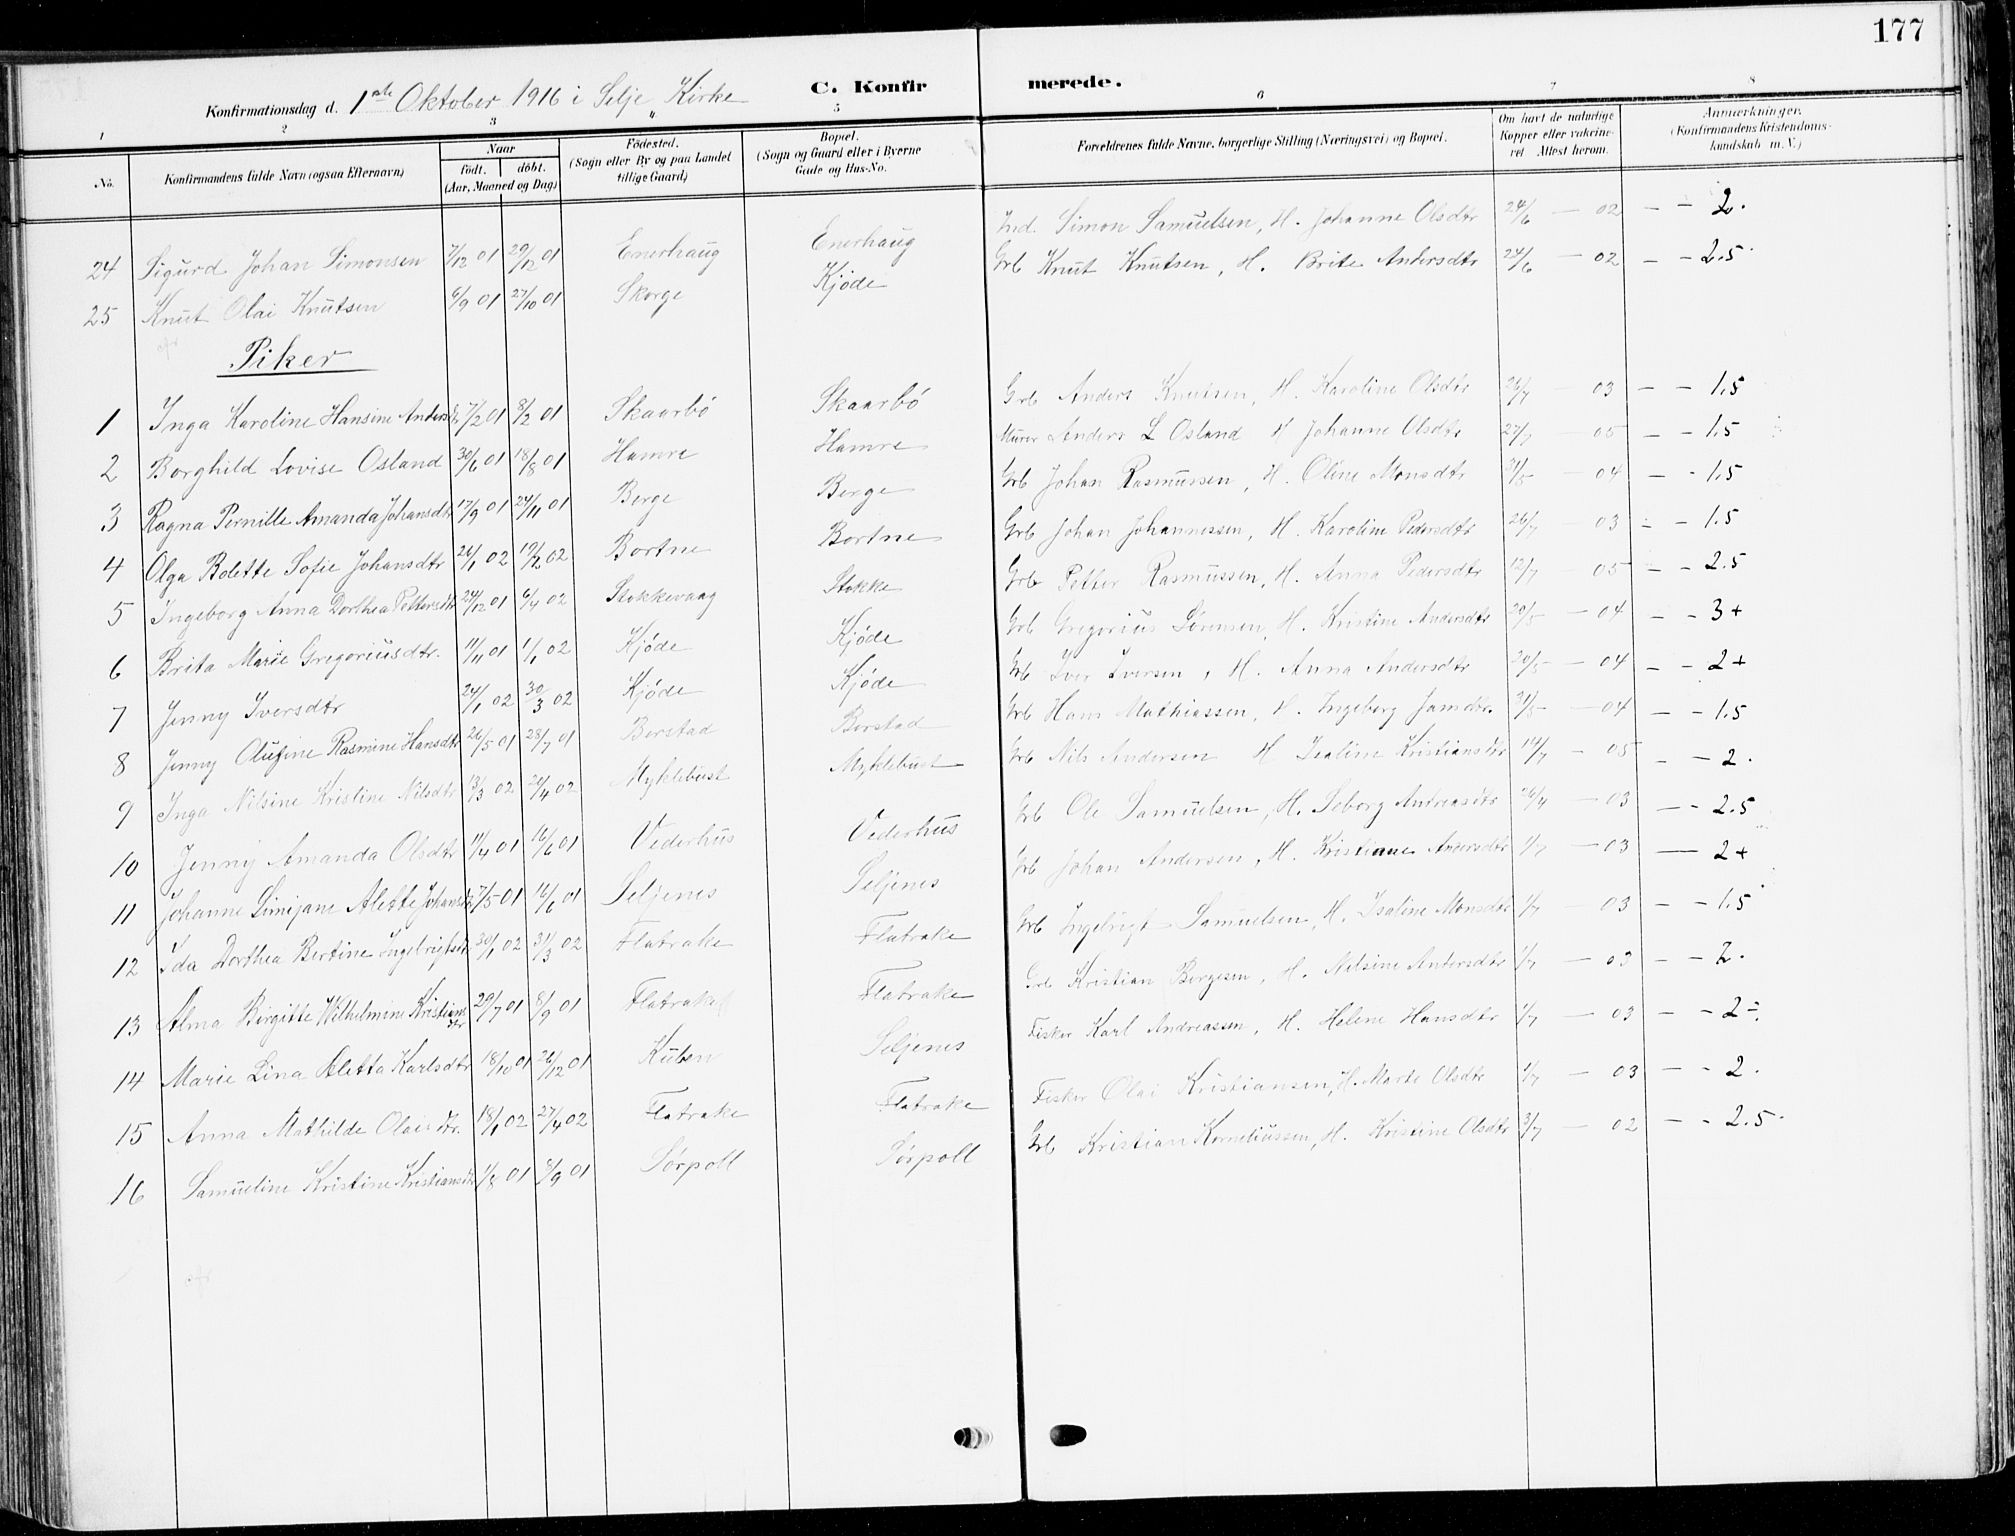 177
Konfirmationsdag d. 1ste Oktober 1916 i Selje Kirke C. Konfirmerede.
1 2 3 4 5 6 7 8
No. Konfirmandens fulde Navn (ogsaa Efternavn) Naar født. døbt. (Aar, Maaned og Dag) Fødested. (Sogn eller By og paa Landet tillige Gaard) Bopæl. (Sogn og Gaard eller i Byerne Gade og Hus-No. Forældrenes fulde Navne, borgerlige Stilling (Næringsvei) og Bopæl. Om havt de naturlige Kopper eller vakcineret Attest herom. Anmærkninger. (Konfirmandens Kristendomskundskab m. V.)
24 Sigurd Johan Simonsen 7/12 01 29/12 01 Enerhaug Enerhaug Ind. Simon Samuelsen, H. Johanne Olsdtr 24/6 — 02 — - 2.
25 Knut Olai Knutsen 6/9 01 27/10 01 Skorge Kjøde Grb Knut Knutsen, H. Brite Andersdtr 24/6 — 02 — - 2.5
Piker
1 Inga Karoline Hansine Andersdtr 7/2 01 8/2 01 Skaarbø Skaarbø Grb Anders Knutsen, H. Karoline Olsdtr 26/7 — 03 — - 1.5
2 Borghild Lovise Osland 30/6 01 18/8 01 Hamre Hamre Murer Anders L Osland H Johanne Olsdtr 27/7 — 05 — - 1.5
3 Ragna Pernille Amanda Johansdtr 17/9 01 24/11 01 Berge Berge Grb Johan Rasmussen, H. Oline Monsdtr 31/5 — 04 — - 1.5
4 Olga Bolette Sofie Johansdtr 26/1 02 19/2 02 Bortne Bortne Grb Johan Johannessen, H. Karoline Pedersdtr 26/7 — 03 — - 1.5
5 Ingeborg Anna Dorthea Pettersdtr 24/12 01 6/4 02 Stokkevaag Stokke Grb Petter Rasmussen, H. Anna Pedersdtr 12/7 — 05 — - 2.5
6 Brita Marie Gregoriusdtr. 11/11 01 1/1 02 Kjøde Kjøde Grb Gregorius Sørensen, H. Kristine Andersdtr 20/5 — 04 — - 3+
7 Jenny Iversdtr 24/1 02 30/3 02 Kjøde Kjøde Grb Iver Iversen, H. Anna Andersdtr 20/5 — 04 — - 2+
8 Jenny Olufine Rasmine Hansdtr 26/5 01 28/7 01 Berstad Berstad Grb Hans Mathiassen, H. Ingeborg Jansdtr. 31/5 — 04 — - 1.5
9 Inga Nilsine Kristine Nilsdtr 13/3 02 20/4 02 Myklebust Myklebust Grb Nils Andersen H Isaline Kristiansdtr 14/7 — 05 — - 2.
10 Jenny Amanda Olsdtr 11/4 01 16/6 01 Vederhus Vederhus Grb Ole Samuelsen, H. Seborg Andreasdtr 26/4 — 03 — - 2.5
11 Johanne Limijane Alette Johansdtr 7/5 01 16/6 01 Seljenes Seljenes Grb Johan Andersen, H. Kristiane Andersdtr 1/7 — 03 — 2+
12 Ida Dorthea Bertine Ingebrigtsdtr 30/1 02 31/3 02 Flatrake Flatrake Grb Ingebrigt Samuelsen, H. Isaline Monsdtr 1/7 — 03 — - 1.5
13 Alma Birgitte Wilhelmine Kristiansdtr 29/7 01 8/9 01 Flatrake Flatrake Grb Kristian Børgesen, H. Nilsine Andersdtr 1/7 — 03 — - 2.
14 Marie Lina Aletta Karlsdtr 18/10 01 26/12 01 Kuben Seljenes Fisker Karl Andreassen, H. Helene Hansdtr 1/7 — 03 — - 2-
15 Anna Mathilde Olaisdtr. 18/1 02 27/4 02 Flatrake Flatrake Fisker Olai Kristiansen, H. Marte Olsdtr 1/7 — 03 — - 2.
16 Samueline Kristine Kristiansdtr 1/8 01 8/9 01 Sørpoll Sørpoll Grb Kristian Korneliussen, H. Kristine Olsdtr 3/7 — 02 — - 2.5